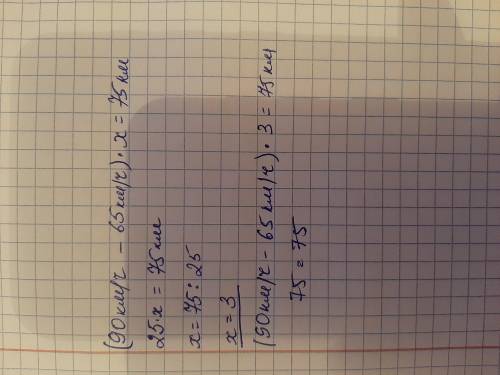 (90км/ч - 65км/ч) · x = 75км
25·x = 75км
x = 75 : 25
x = 3
(90км/ч - 65км/ч) · 3 = 75км
75 = 75